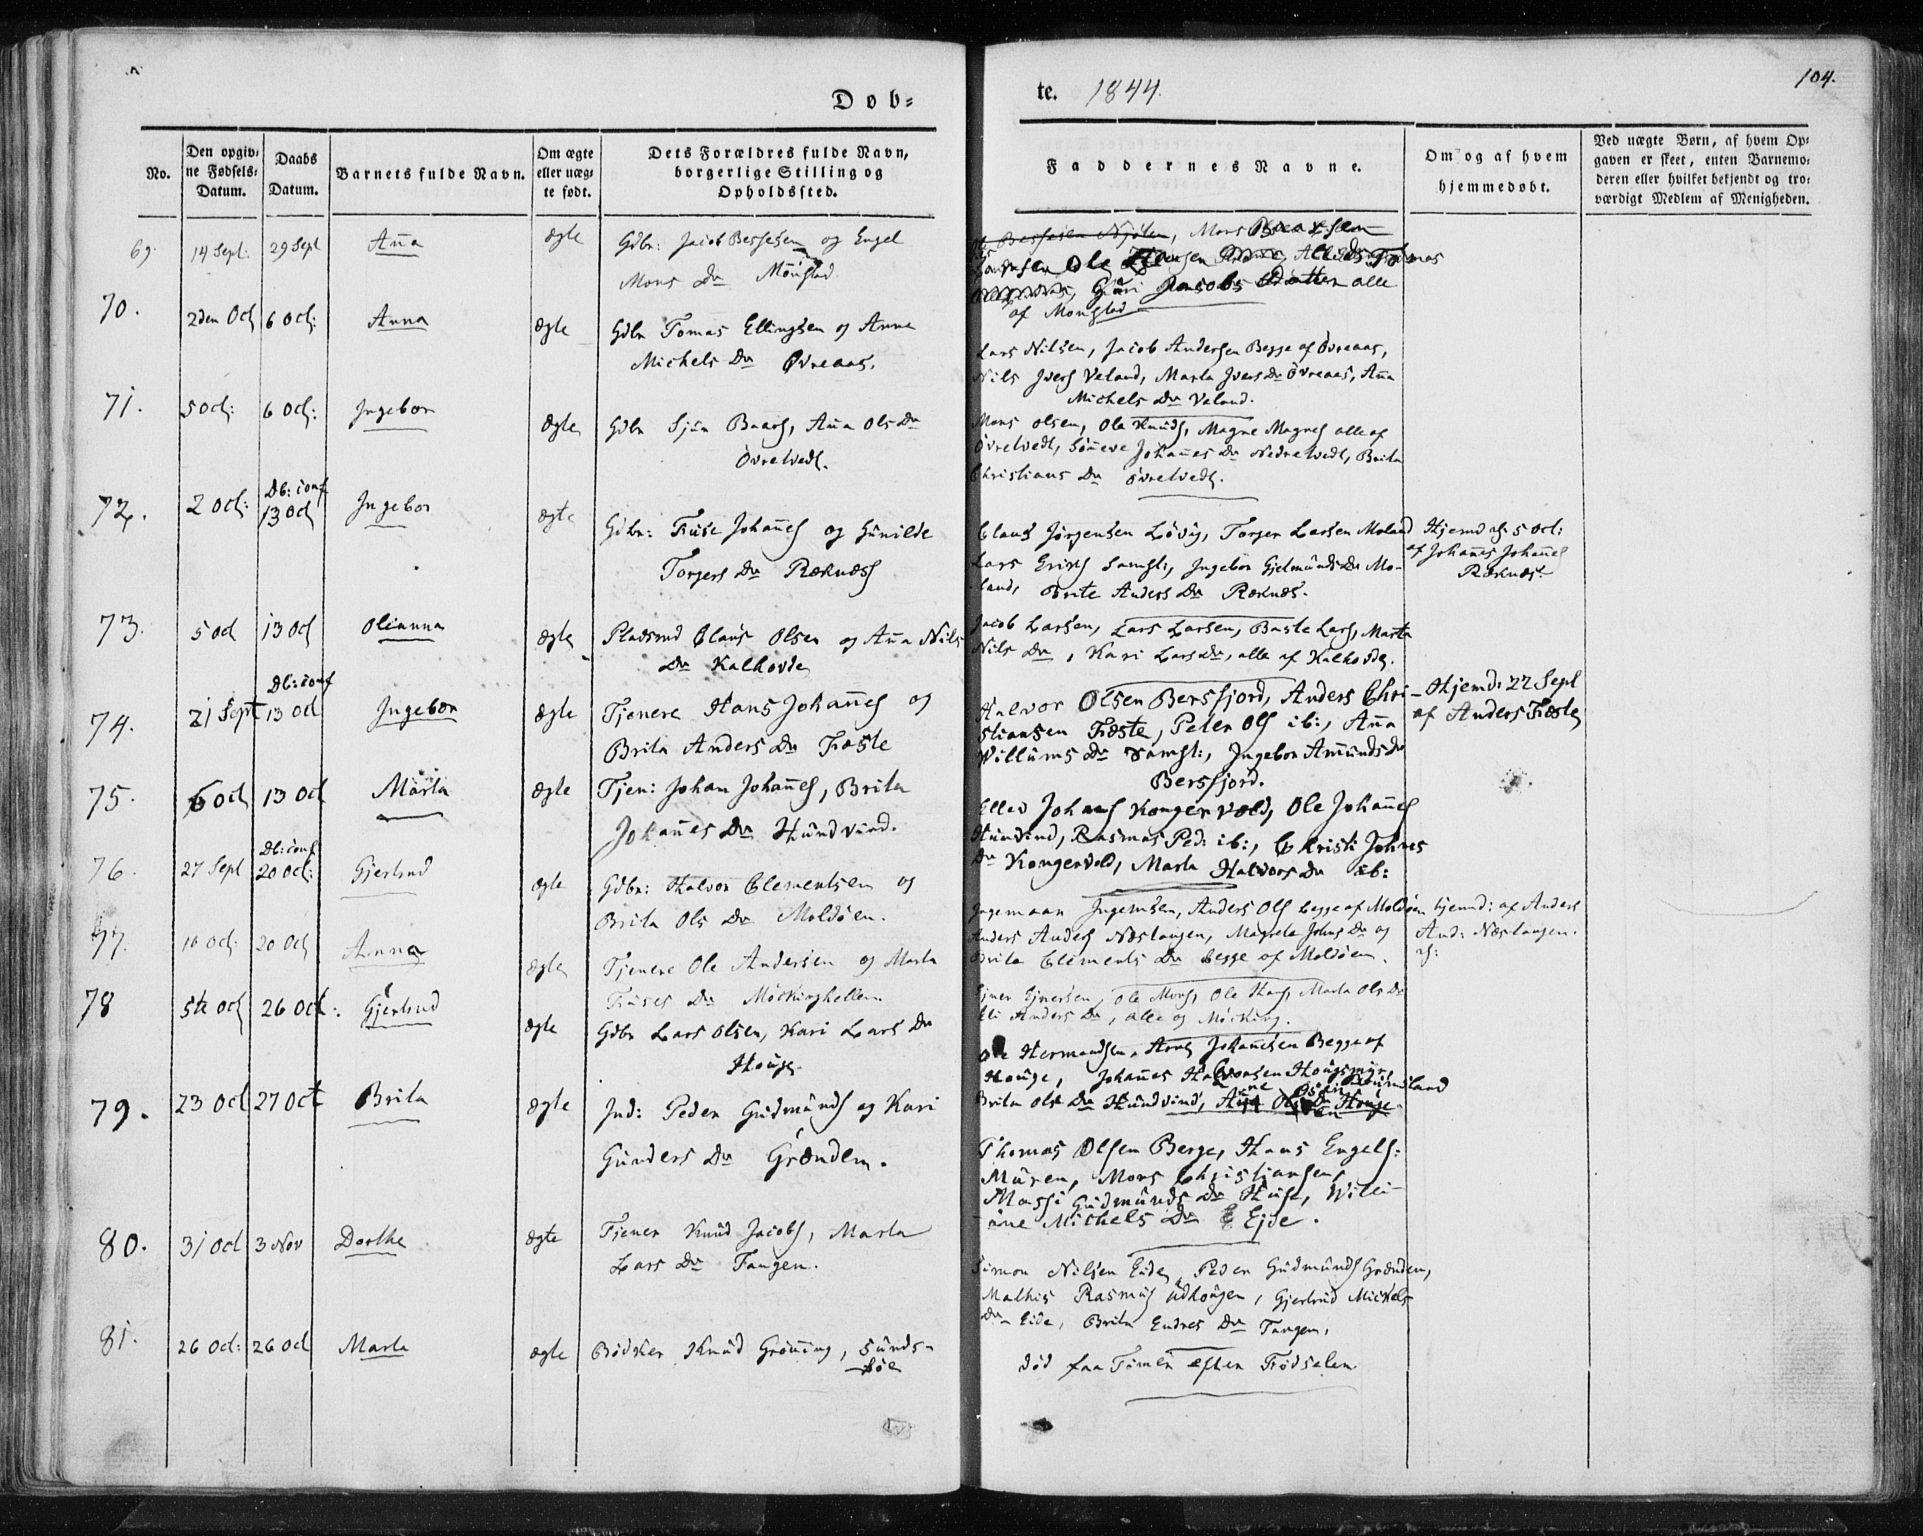 104.
Døb=
te. 1844.
No.
Den opgiv=
ne Fødsels=
Datum.
Daabs
Datum.
Barnets fulde Navn.
Om ægte
eller uæg=
te født.
Dets Forældres fulde Navn,
borgerlige Stilling og
Opholdssted.
Faddernes Navne.
Om og af hvem
hjemmedøbt.
Ved uægte Børn, af hvem Op=
gaven er skeet, enten Barnemo=
deren eller hvilket bekjendt og tro=
værdigt Medlem af Menigheden.
69 14 Sept: 29 Sept Anna ægte Gdbr: Jacob Bessesen og Engel
Mons Dr Mongstad
Mons
Ole
Guri Jacobs Datter alle
af Mongstad
70. 2den Oct 6 Oct: Anna ægte Gdbr Tomas Ellingsen og Anne
Michels Dr Øvreaas.
Lars Nilsen, Jacob Andersen Begge af Øvreaas,
Nils Ivers Veland, Marta Ivers Dr Øvreaas, Anna
Michels Dr Veland.
71. 5 Oct: 6 Oct: Ingebor ægte Gdbr Sjur Baars, Anna Ols Dr
Øvretvedt.
Mons Olsen, Ole Knuds, Magne Magnes alle af
Øvretvedt, Sønneve Johannes Dr Nedretvedt, Brita
Christians Dr Øvretvedt.
72. 2 Oct: Db: conf 13 Oct Ingebor ægte Gdbr: Truse Johannes og Gunilde
Torgers Dr Røknæs
Claus Jørgensen Løvig, Torger Larsen Moland
Lars Erichs samst:, Ingebor Gjelmunds Dr Mo-
land, Brite Anders Dr Røknæs.
Hjemd 5 Oct:
af Johannes Johannes
Røknæs.
73. 5 Oct 13 Oct Olianna ægte Pladsmd Claus Olsen og Anna Nils
Dr Kalhovde
Jacob Larsen, Lars Larsen, Baste Lars, Marta
Nils Dr, Kari Lars Dr, alle af Kalhovde.
74. 21 Sept Db: conf 13 Oct Ingebor ægte Tjenere Hans Johannes og
Brita Anders Dr Fræste
Halvor Olsen Bersfjord, Anders Chri-
stiansen Fræste, Peter Ols ib:, Anna
Willums Dr samst:, Ingebor Amunds Dr
Bersfjord.
Hjemd: 22 Sept
af Anders Fræste
75. 6 Oct 13 Oct Marta ægte Tjen: Johan Johannes, Brita
Johannes Dr Hundvind.
Elled Johans Kongervold, Ole Johannes
Hundvind, Rasmus Ped: ib:, Christi Johnes
Dr Kongervold, Marta Halvors Dr
76. 27 Sept Db: conf 20 Oct: Gjertrud ægte Gdbr: Halvor Clementsen og
Brita Ols Dr Moldøen.
Ingemaan Ingemsen, Anders Ols begge af Moldøen
Anders Anders Næstangen, Magrete Johns Dr og
Brita Clements Dr begge af Moldøen.
hjemd: af Anders
And: Næstangen.
77. 16 Oct: 20 Oct Anna ægte Tjenere Ole Andersen og Marta
Truses Dr Møckinghellen
Ejner Ejnersen, Ole Mons, Ole Hans, Marta Ols Dr
Eli Anders Dr, alle af Møcking.
78 5te Oct 26 Oct: Gjertrud ægte Gdbr Lars Olsen, Kari Lars Dr
Houge.
Ole Hermandsen, Johannesen Begge af
Houge, Johannes Halvorsen Hougsmyr,
Brita Ols Dr Hundvind, Houge
79. 23 Oct 27 Oct Brita ægte Ind: Peder Gudmunds og Kari
Gunders Dr Grænden.
Thomas Olsen Berge, Hans Engels:
Muren, Mons Christjansen,
Massi Gudmunds Dr Huse, Wili-
ane Michels Dr Eide.
80. 31 Oct 3 Nov Dorthe ægte Tjener Knud Jacobs, Marta
Lars Dr Tangen.
Simon Nilsen Eide, Peder Gudmunds Grænden,
Mathis Rasmus Udhougen, Gjertrud Michels
Dr Eide, Brita Endres Dr Tangen.
81. 26 Oct: 26 Oct Marta ægte Bødker Knud Grønning, Sunds-
bøe
død faa Timer efter Fødselen